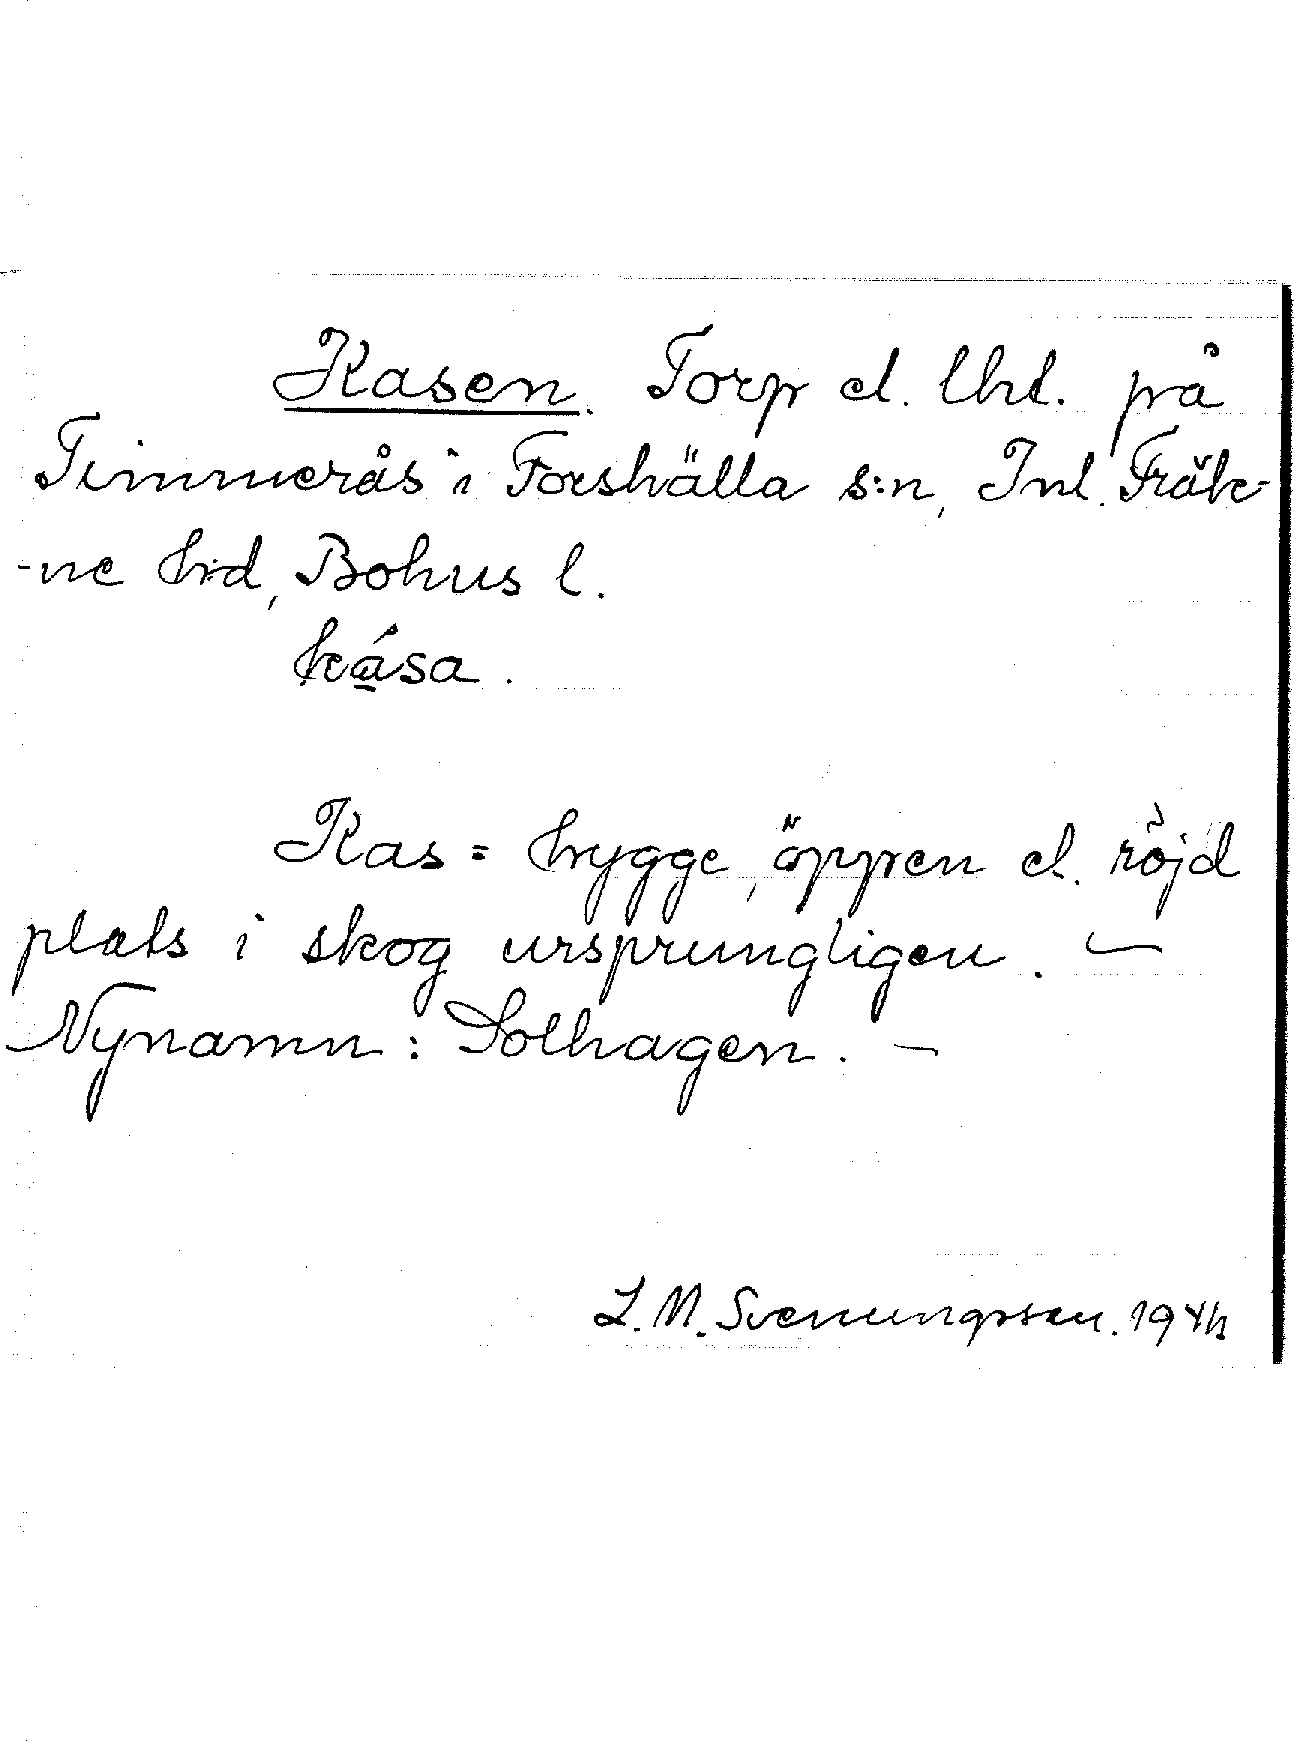 Kasen. Torp el. lht. på
Timmerås i Forshälla s:n, Inl. Fräk-
-ne hd, Bohus l.
kása.
Kas = hygge, öppen el. röjd
plats i skog ursprungligen. —
Nynamn: Solhagen. —
L. M. Svenungsson. 1944